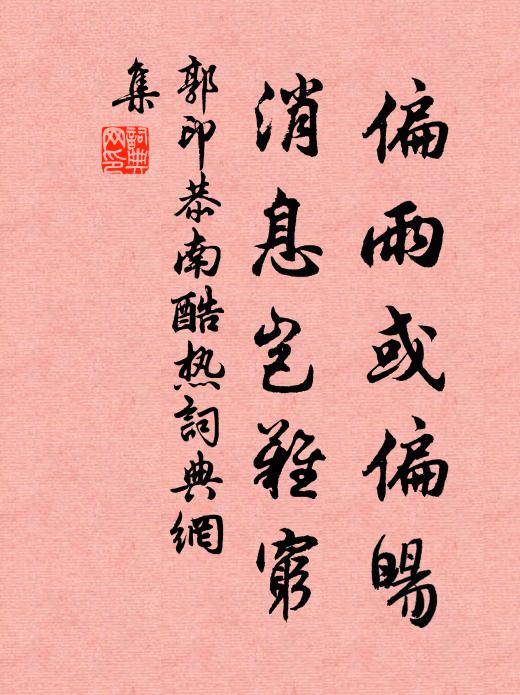 偏雨或偏暘
消息岂難窮
郭印恭南酷热詞典網
集
詞典
网印